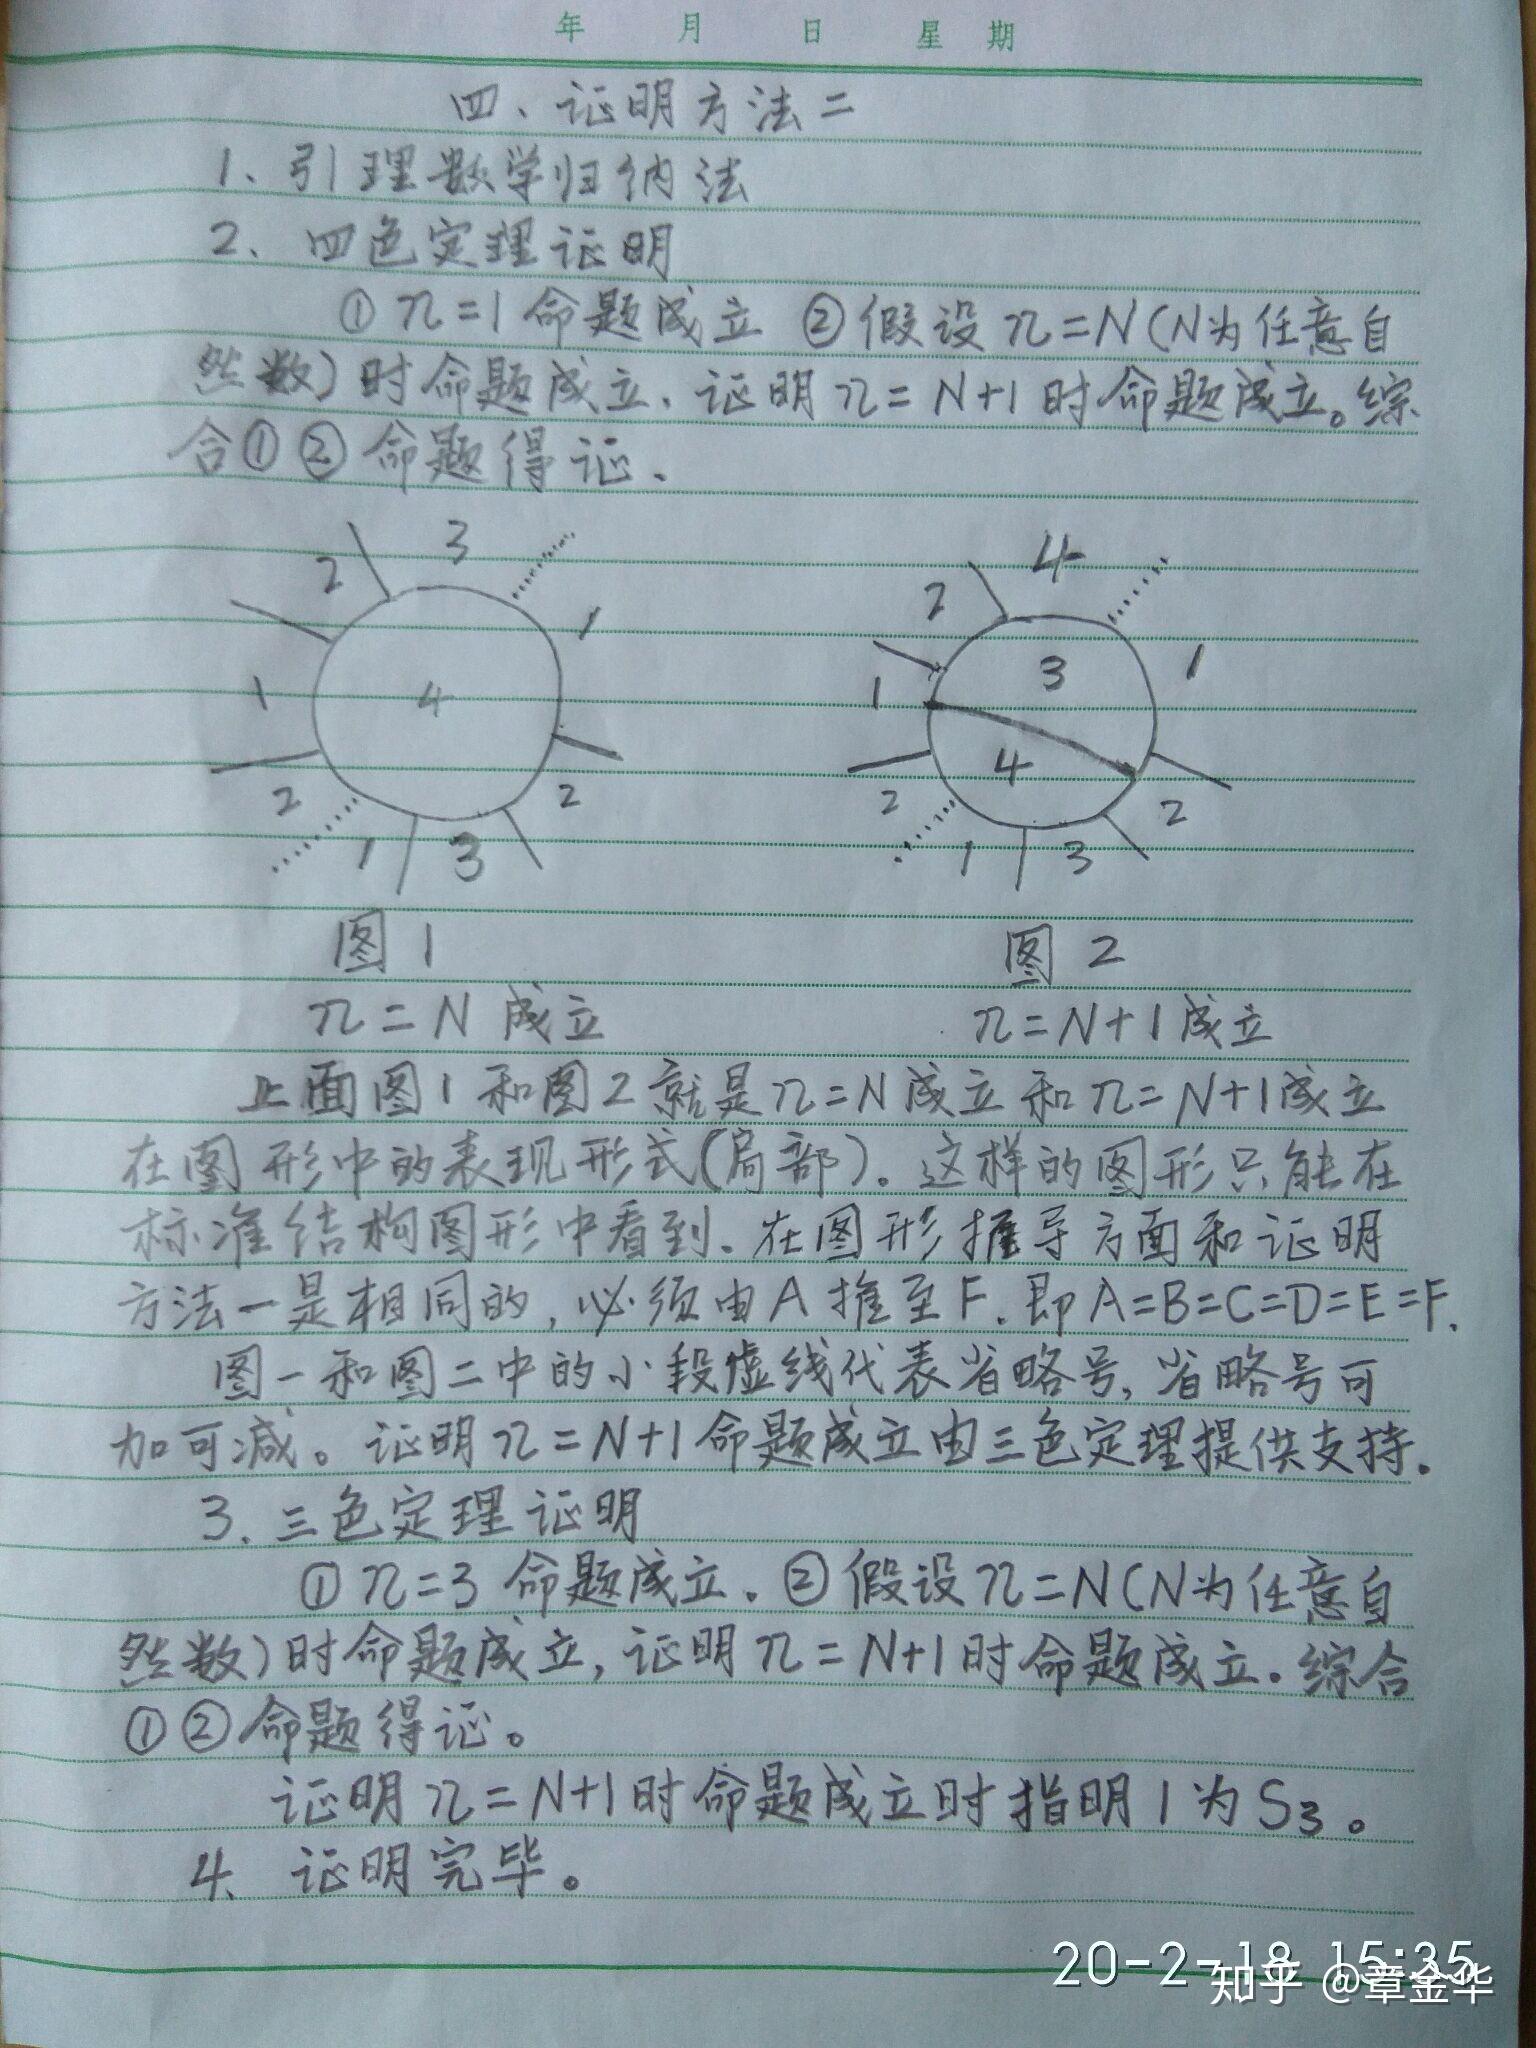 年 月 日 星 期
四、证明方法二
1、引理数学归纳法
2、四色定理证明
① n=1命题成立 ②假设n=N(N为任意自
然数)时命题成立、证明n=N+1时命题成立。综
合①②命题得证、
2 3 1 1 4 2 2 1 3
2 4 1 1 3 4 2 2 1 3
图1
图2
n=N 成立
n=N+1成立
上面图1和图2就是n=N成立和n=N+1成立
在图形中的表现形式(局部)。这样的图形只能在
标准结构图形中看到。在图形推导方面和证明
方法一是相同的,必须由A推至F.即A=B=C=D=E=F.
图一和图二中的小段虚线代表省略号,省略号可
加可减。证明n=N+1命题成立由三色定理提供支持.
3、三色定理证明
① n=3 命题成立.②假设n=N(N为任意自
然数)时命题成立,证明n=N+1时命题成立。综合
①②命题得证。
证明n=N+1时命题成立时指明1为S3。
4、证明完毕。
20-2-18 15:35
知乎 @章金华